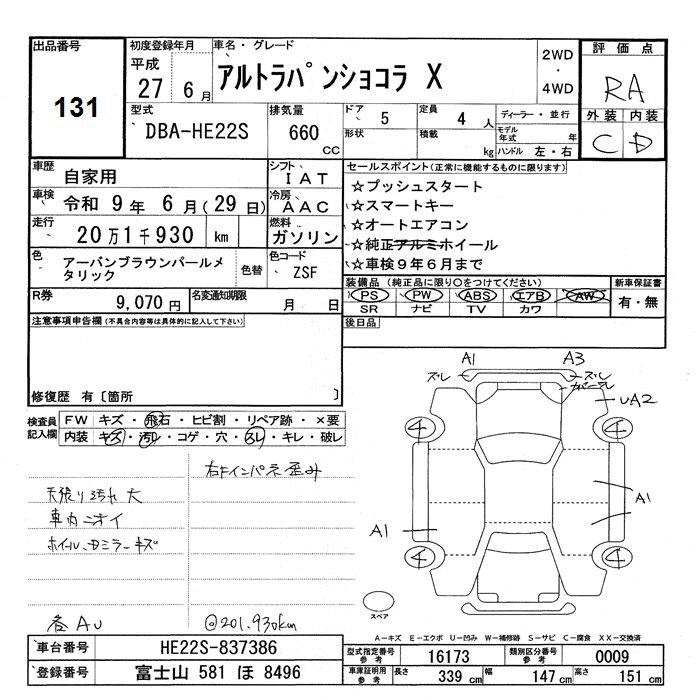 出品番号
131
初度登録年月
平成
27 6 月
車名・グレード
アルトラパンショコラ X
2WD
・
4WD
評価点
RA
外装 内装
C D
型式
DBA-HE22S
排気量
660
CC
ドア 5
形状
定員 4 人
積載 kg
ディーラー・並行
モデル年式 年
ハンドル 左・右
車歴 自家用
シフト IAT
車検 令和 9年 6月(29日)
冷房 AAC
走行 20万1千930 km
燃料 ガソリン
色 アーバンブラウンパールメタリック
色替
色コード ZSF
R券 9,070円
名変通知期限 月 日
セールスポイント(正常に機能するものに限ります)
☆プッシュスタート
☆スマートキー
☆オートエアコン
☆純正アルミホイール
☆車検9年6月まで
装備品(純正品に限り○をつけてください)
PS PW ABS エアB AW
SR ナビ TV カワ
新車保証書
有・無
後日品
注意事項申告欄(不具合内容等は具体的に記入して下さい)
修復歴 有〔箇所 〕
検査員記入欄
FW キズ・飛石・ヒビ割・リペア跡・×要
内装 キズ・汚レ・コゲ・穴・スレ・キレ・破レ
天張り汚れ 大
車内ニオイ
ホイール、Dミラーキズ
各AU
右Fインパネ歪み
@201,930km
A1 A3
ズレ ズレ
UA2
4 4
A1
A1
4 4
スペア
A-キズ E-エクボ U-凹み W-補修跡 S-サビ C-腐食 XX-交換済
車台番号 HE22S-837386
登録番号 富士山 581 ほ 8496
型式指定番号 参考 16173
類別区分番号 参考 0009
車庫証明用 参考 長さ 339 cm 幅 147 cm 高さ 151 cm